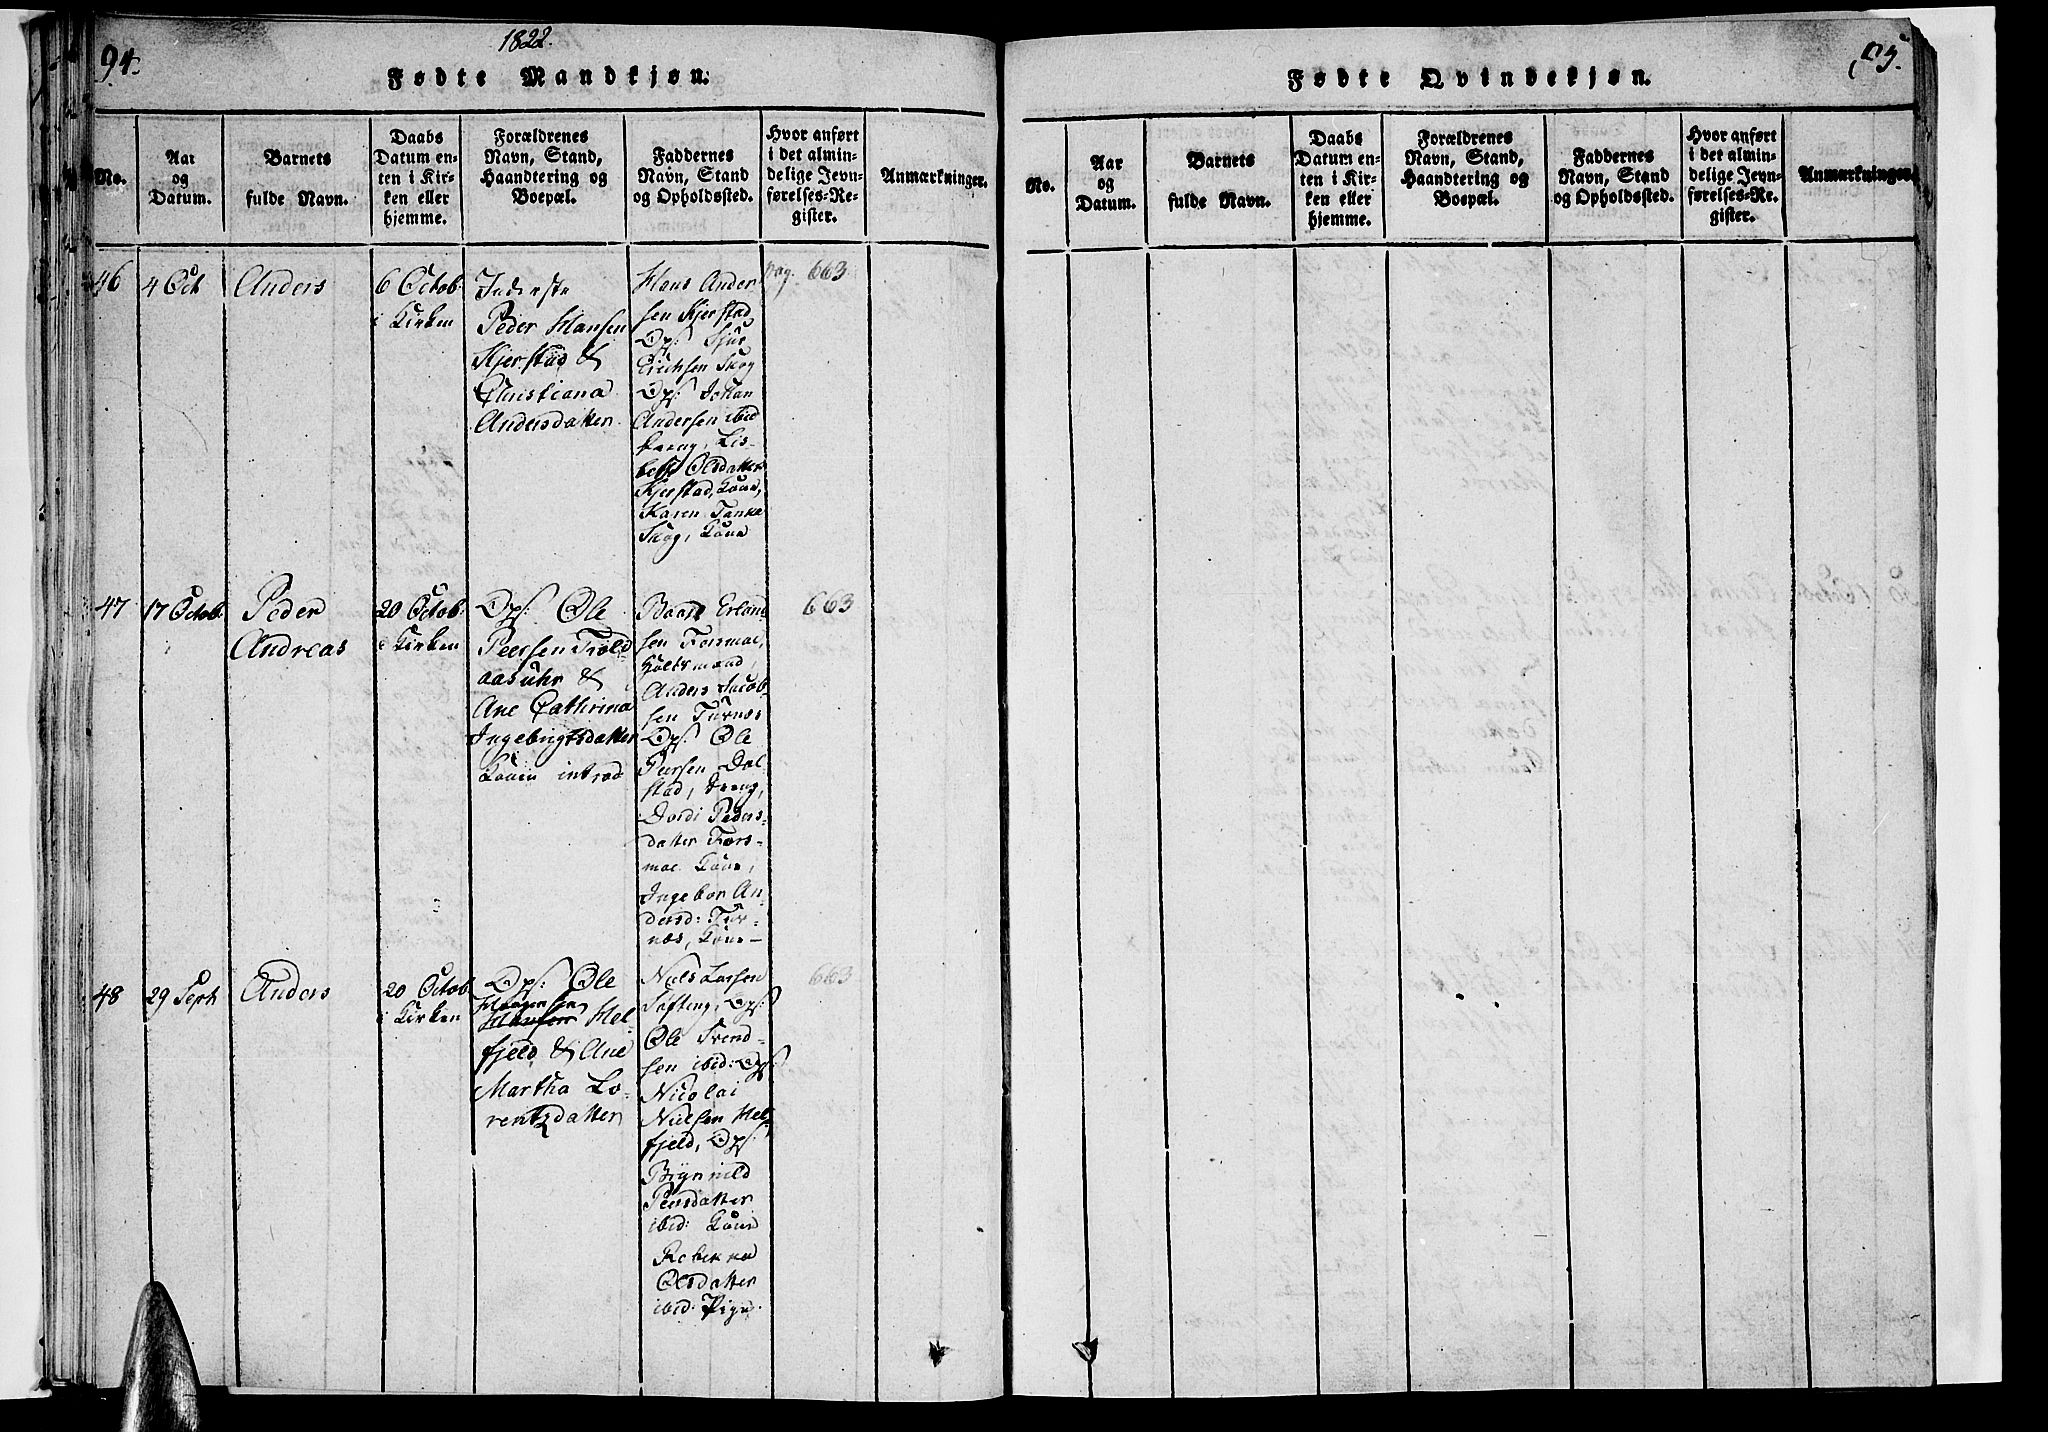 94.
1822.
Fødte Mandkjøn.
No.
Aar
og
Datum.
Barnets
fulde Navn.
Daabs
Datum en-
ten i Kir-
ken eller
hjemme.
Forældrenes
Navn, Stand,
Haandtering og
Boepæl.
Faddernes
Navn, Stand
og Opholdssted.
Hvor anført
i det almin-
delige Jevn-
førelses-Re-
gister.
Anmærkninger.
46
4 Oct
Anders
6 Octob.
i Kirken
Inderste
Peder Hansen
Kjerstad &
Christiana
Andersdatter
Hans Ander
sen Kjerstad
Ops: Sjur
Erichsen Skog
Ops: Johan
Andersen ibid
Lis-
beth Olsdatter
Kjerstad, Kone,
Karen Tanke
Skog, Kone
pag. 663
47
17 Octob:
Peder
Andreas
20 Octob.
i Kirken
Ops: Ole
Peersen Trold
aasuhr &
Ane Cathrina
Ingebrigtsdatter
Konen introd
Baard Erland
sen Forsmoe,
Anders Jacob-
sen Turnes
Ops: Ole
Peersen Dol
stad, dreng,
Dordi Peders-
datter Fors-
moe Kone,
Ingebor An-
dersd: Tur-
næs, Kone-
663
48
29 Sept
Anders
20 Octob
i Kirken
Ops: Ole
Mogensen
Hansen Hel-
fjeld & Ane
Martha Lo-
rentzdatter
Niels Larsen
Tofting, Ops:
Ole Svend-
sen ibid: Ops
Nicolai
Nielsen Hel
fjeld, Ops:
Brynnild
Peersdatter
ibid: Kone
Rebekka
Olsdatter
ibid: Pige.
663
95.
Fødte Qvindekjøn.
No.
Aar
og
Datum.
Barnets
fulde Navn.
Daabs
Datum en-
ten i Kir-
ken eller
hjemme.
Forældrenes
Navn, Stand,
Haandtering og
Boepæl.
Faddernes
Navn, Stand
og Opholdssted.
Hvor anført
i det almin-
delige Jevn-
førelses-Re-
gister.
Anmærkninger.